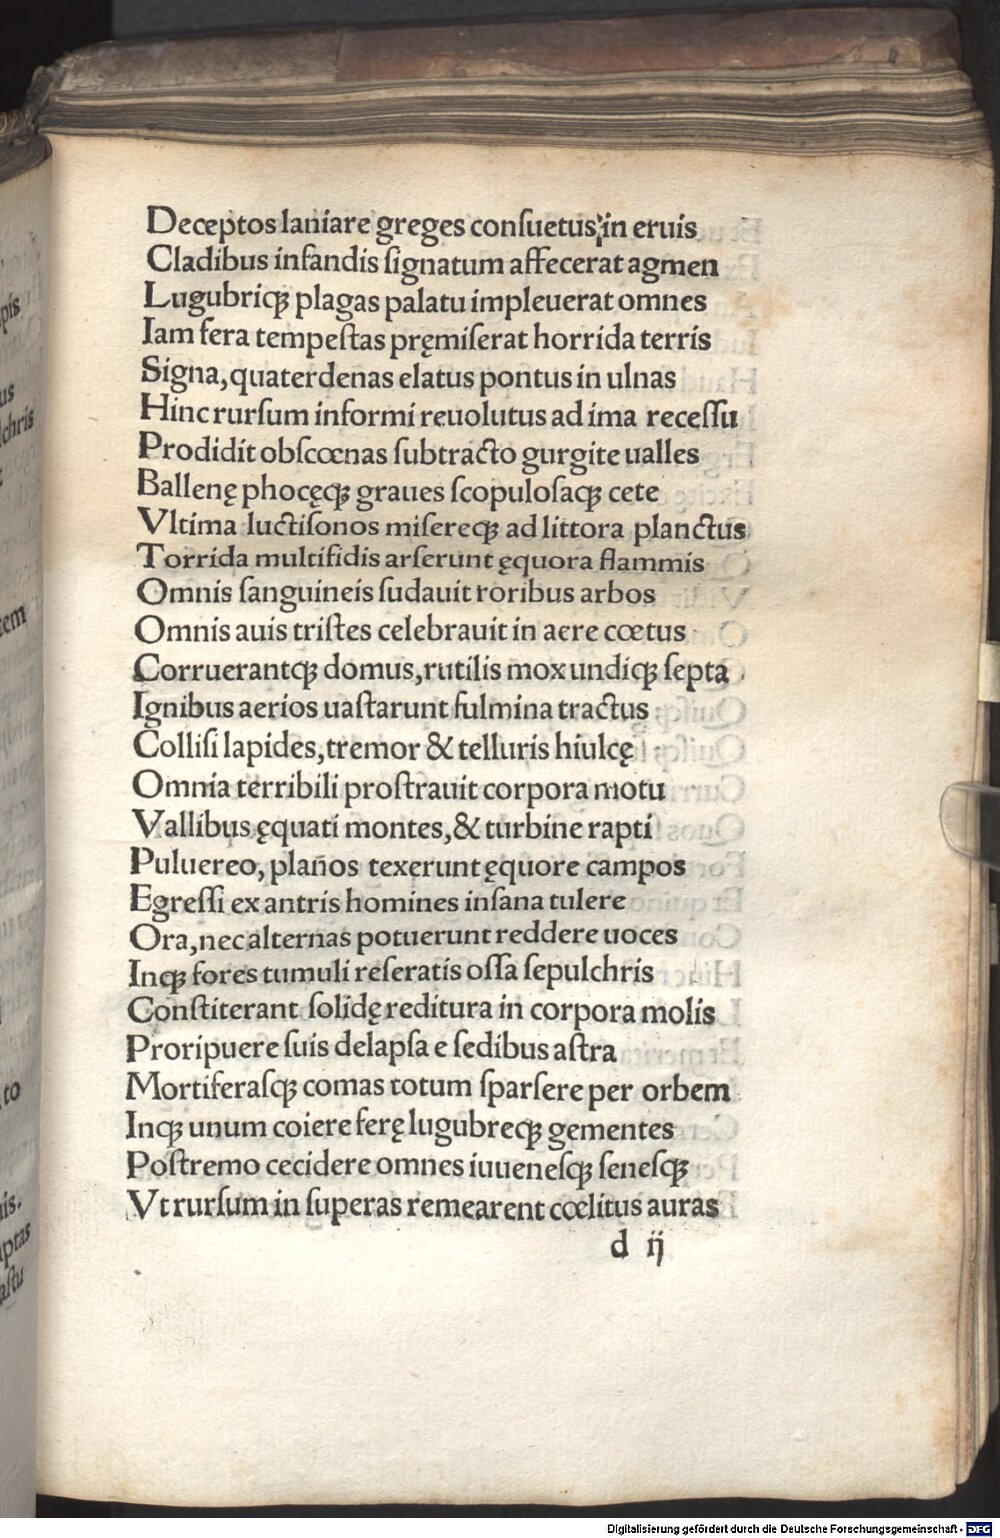 Deceptos laniare greges conſuetus, in eruis
Cladibus infandis ſignatum affecerat agmen
Lugubriqꝫ plagas palatu impleuerat omnes
Iam fera tempeſtas pręmiſerat horrida terris
Signa, quaterdenas elatus pontus in ulnas
Hinc rurſum informi reuolutus ad ima receſſu
Prodidit obſcœnas ſubtracto gurgite ualles
Ballenę phocęqꝫ graues ſcopuloſaqꝫ cete
Vltima luctiſonos miſereqꝫ ad littora planctus
Torrida multifidis arſerunt ęquora flammis
Omnis ſanguineis ſudauit roribus arbos
Omnis auis triſtes celebrauit in aere cœtus
Corruerantqꝫ domus, rutilis mox undiqꝫ ſepta
Ignibus aerios uaſtarunt fulmina tractus
Colliſi lapides, tremor & telluris hiulcę
Omnia terribili proſtrauit corpora motu
Vallibus ęquati montes, & turbine rapti
Puluereo, plaños texerunt ęquore campos
Egreſſi ex antris homines inſana tulere
Ora, nec alternas potuerunt reddere uoces
Inqꝫ fores tumuli reſeratis oſſa ſepulchris
Conſtiterant ſolidę reditura in corpora molis
Proripuere ſuis delapſa e ſedibus aſtra
Mortiferaſqꝫ comas totum ſparſere per orbem
Inqꝫ unum coiere ferę lugubreqꝫ gementes
Poſtremo cecidere omnes iuueneſqꝫ ſeneſqꝫ
Vt rurſum in ſuperas remearent cœlitus auras
d ij
Digitalisierung gefördert durch die Deutsche Forschungsgemeinschaft - DFG